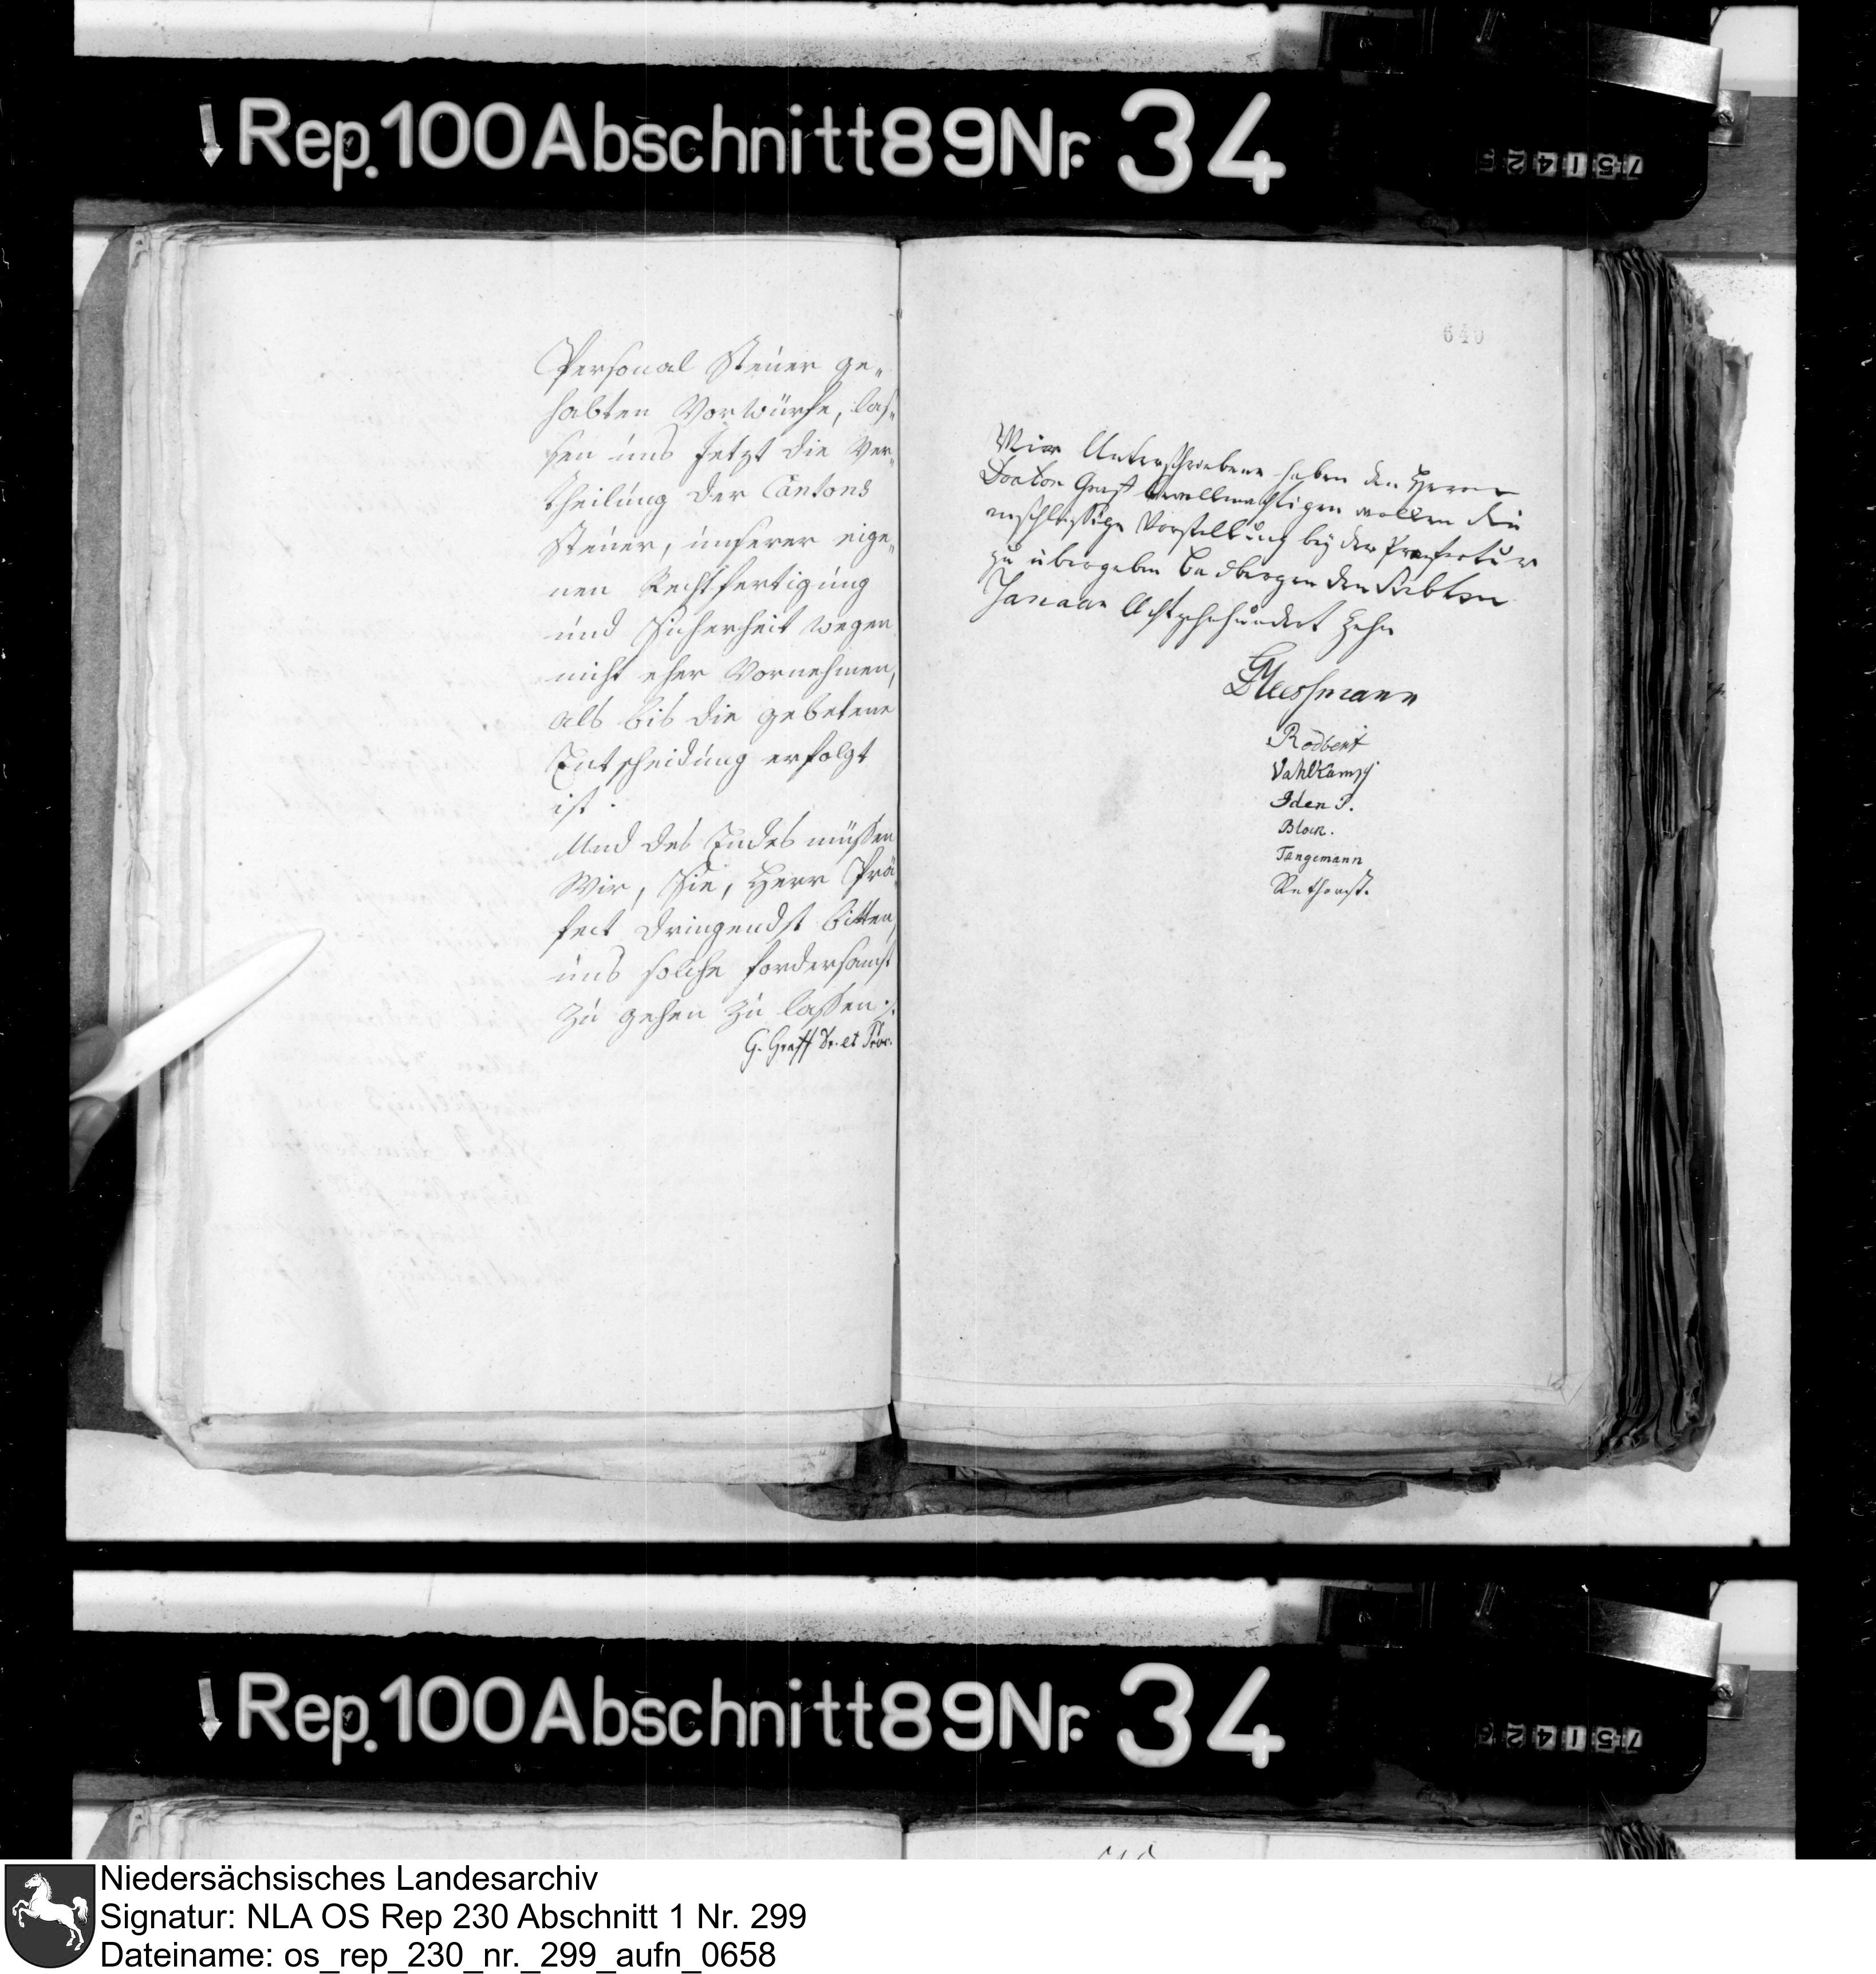 Rep. 100 Abschnitt 89 Nr. 34
751425
Personal Steuer ge„
habten Vorwürfe, las„
sen uns jetzt die Ver„
theilung der Cantons
Steuer, unserer eige„
nen Rechtfertigung
und Sicherheit wegen
nicht eher Vornehmen,
als bis die gebetene
Entscheidung erfolgt
ist.
Und des Endes müßen
Wir, Sie, Herr Prä„
fect dringendst bitten,
uns solche fordersamst
zu gehen zu laßen
G. Graff Dr. et Proc.
640
Wir Unterschriebene haben den Herrn
Doctor Graff bevollmachtigen wollen die
Vorstellung bey der Praefectur
zu übergeben Badbergen den Siebten
Januar Achtzehnhundert Zehn
Meessmann
Rodbert
Vahlkampf
Iden
Block.
Tangemann
Rethorst.
Rep. 100 Abschnitt 89 Nr. 34
75142
Niedersächsisches Landesarchiv
Signatur: NLA OS Rep 230 Abschnitt 1 Nr. 299
Dateiname: os_rep_230_nr._299_aufn_0658